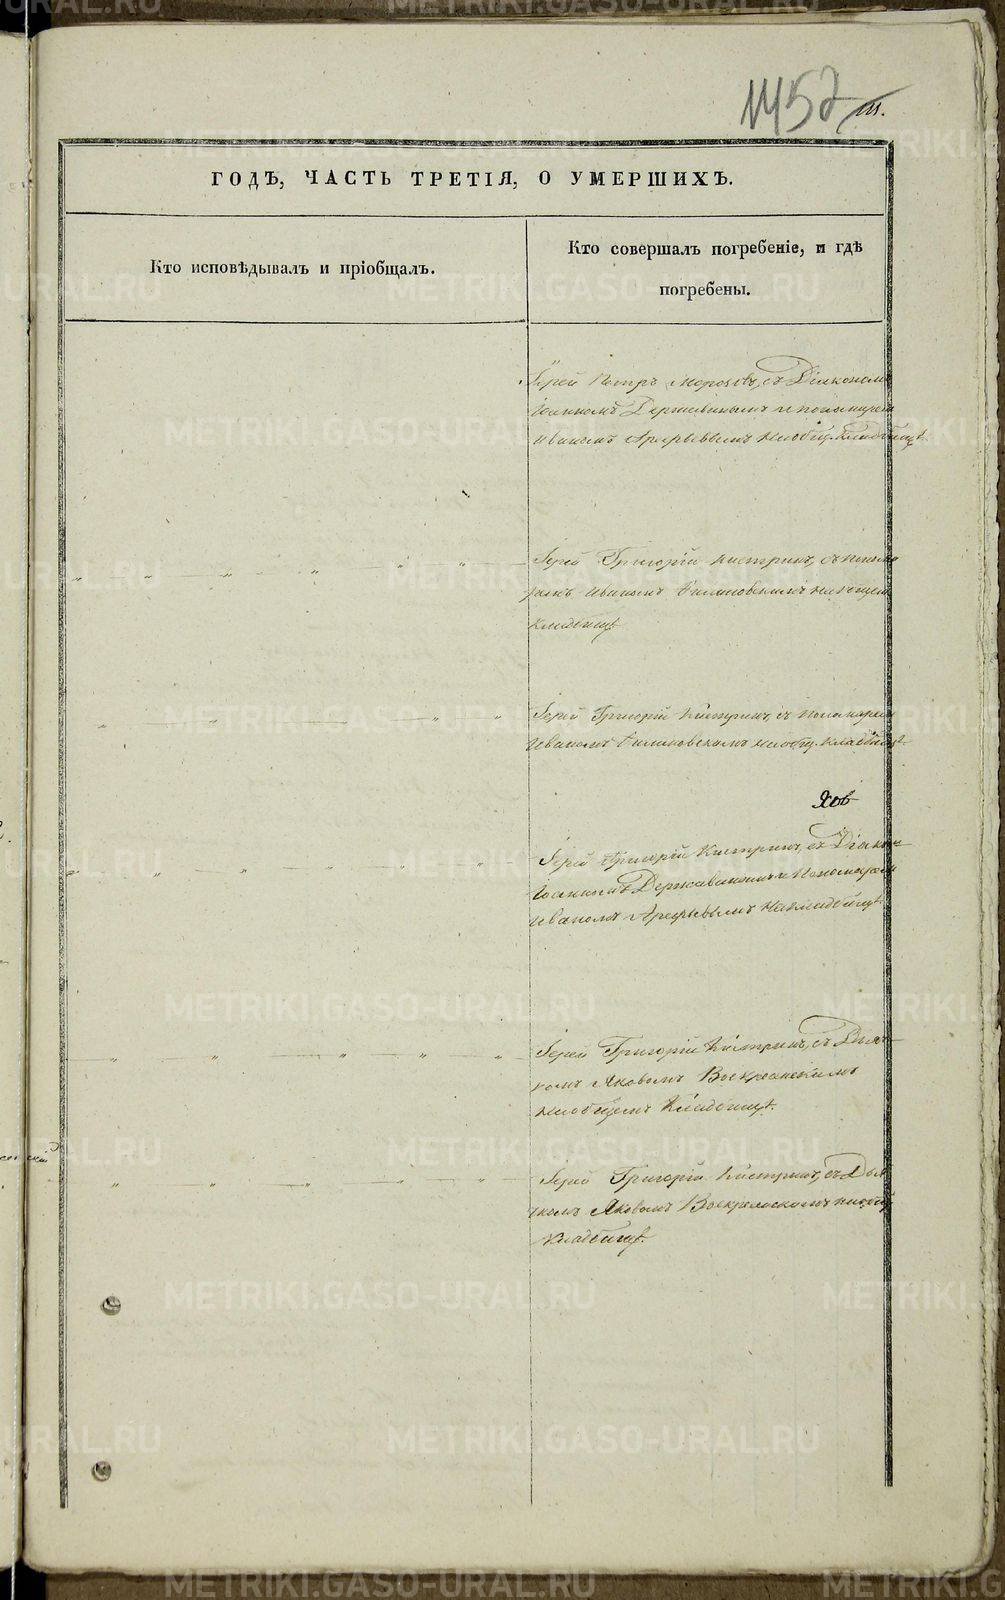 1457
ГОДЪ, ЧАСТЬ ТРЕТІЯ, О УМЕРШИХЪ.
Кто исповѣдывалъ и пріобщалъ.
Кто совершалъ погребеніе, и гдѣ
погребены.
Іерей Петръ Морозовъ, съ Діакономъ
Іоанномъ Державинымъ и пономаремъ
Иваномъ Арефьевымъ на общ. кладбищѣ.
Іерей Григорій Кистринъ, съ понома
ремъ Иваномъ на общемъ
кладбищѣ
Іерей Григорій Кистринъ, съ пономаремъ
Иваномъ на общ. кладбищѣ.
Іерей Григорій Кистринъ, съ Діакон
Іоанномъ Державинымъ и Пономаремъ
Иваномъ Арефьевымъ на кладбищѣ.
Іерей Григорій Кистринъ, съ Дьяч
комъ Яковомъ Воскресенскимъ
на общемъ кладбищѣ.
Іерей Григорій Кистринъ, съ Дья
чкомъ Яковомъ Воскресенскимъ на общ
кладбищѣ.
METRIKI.GASO-URAL.RU